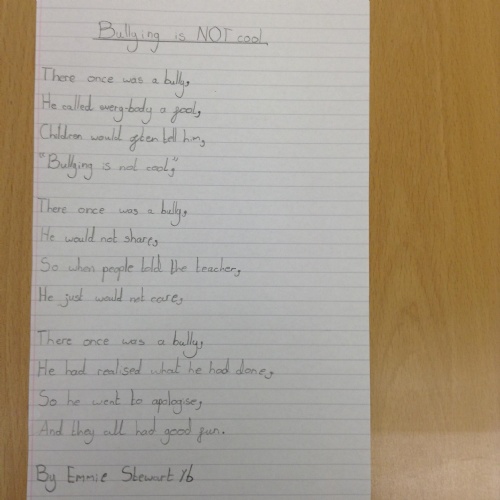 Bullying is NOT cool
There once was a bully,
He called every-body a fool,
Children would often tell him,
"Bullying is not cool,"
There once was a bully,
He would not share,
So when people told the teacher,
He just would not care,
There once was a bully,
He had realised what he had done,
So he went to apologise,
And they all had good fun.
By Emmie Stewart